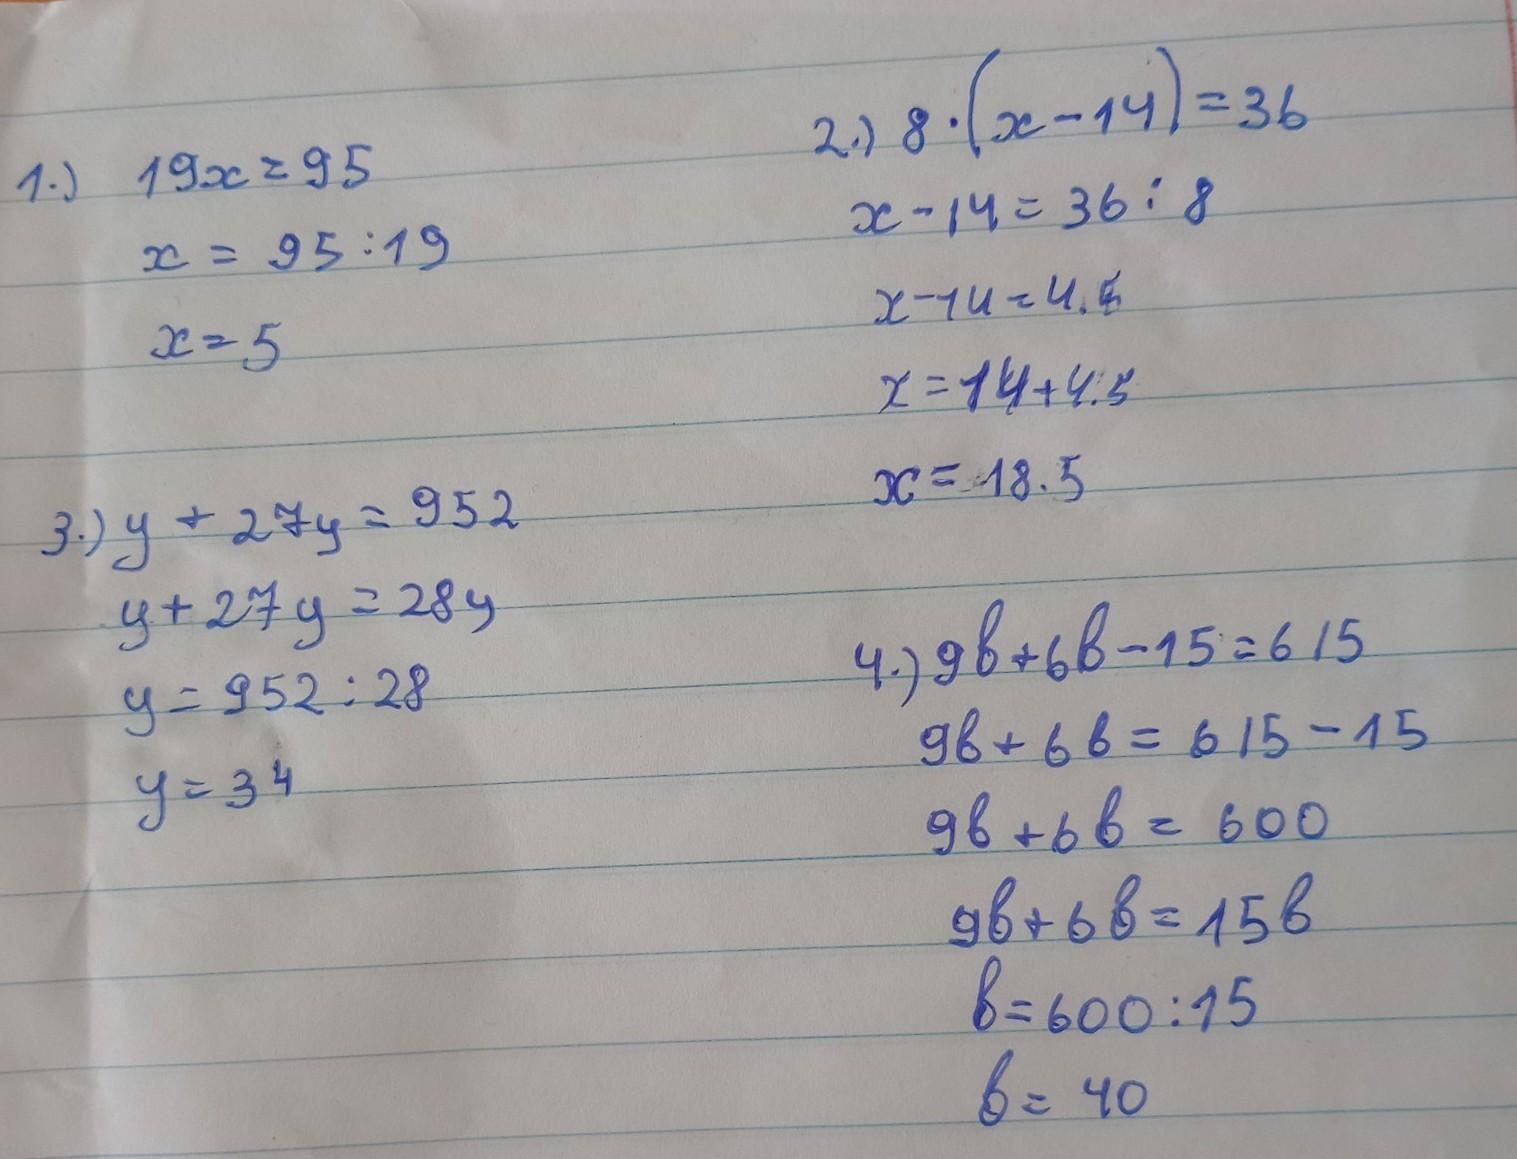 1.) 19x=95
x = 95:19
x=5
2.) 8·(x-14)=36
x-14=36:8
x-14=4.5
x=14+4.5
x=18.5
3.) y+27y=952
y+27y=28y
y=952:28
y=34
4.) 9b+6b-15=615
9b+6b=615-15
9b+6b=600
9b+6b=15b
b=600:15
b=40